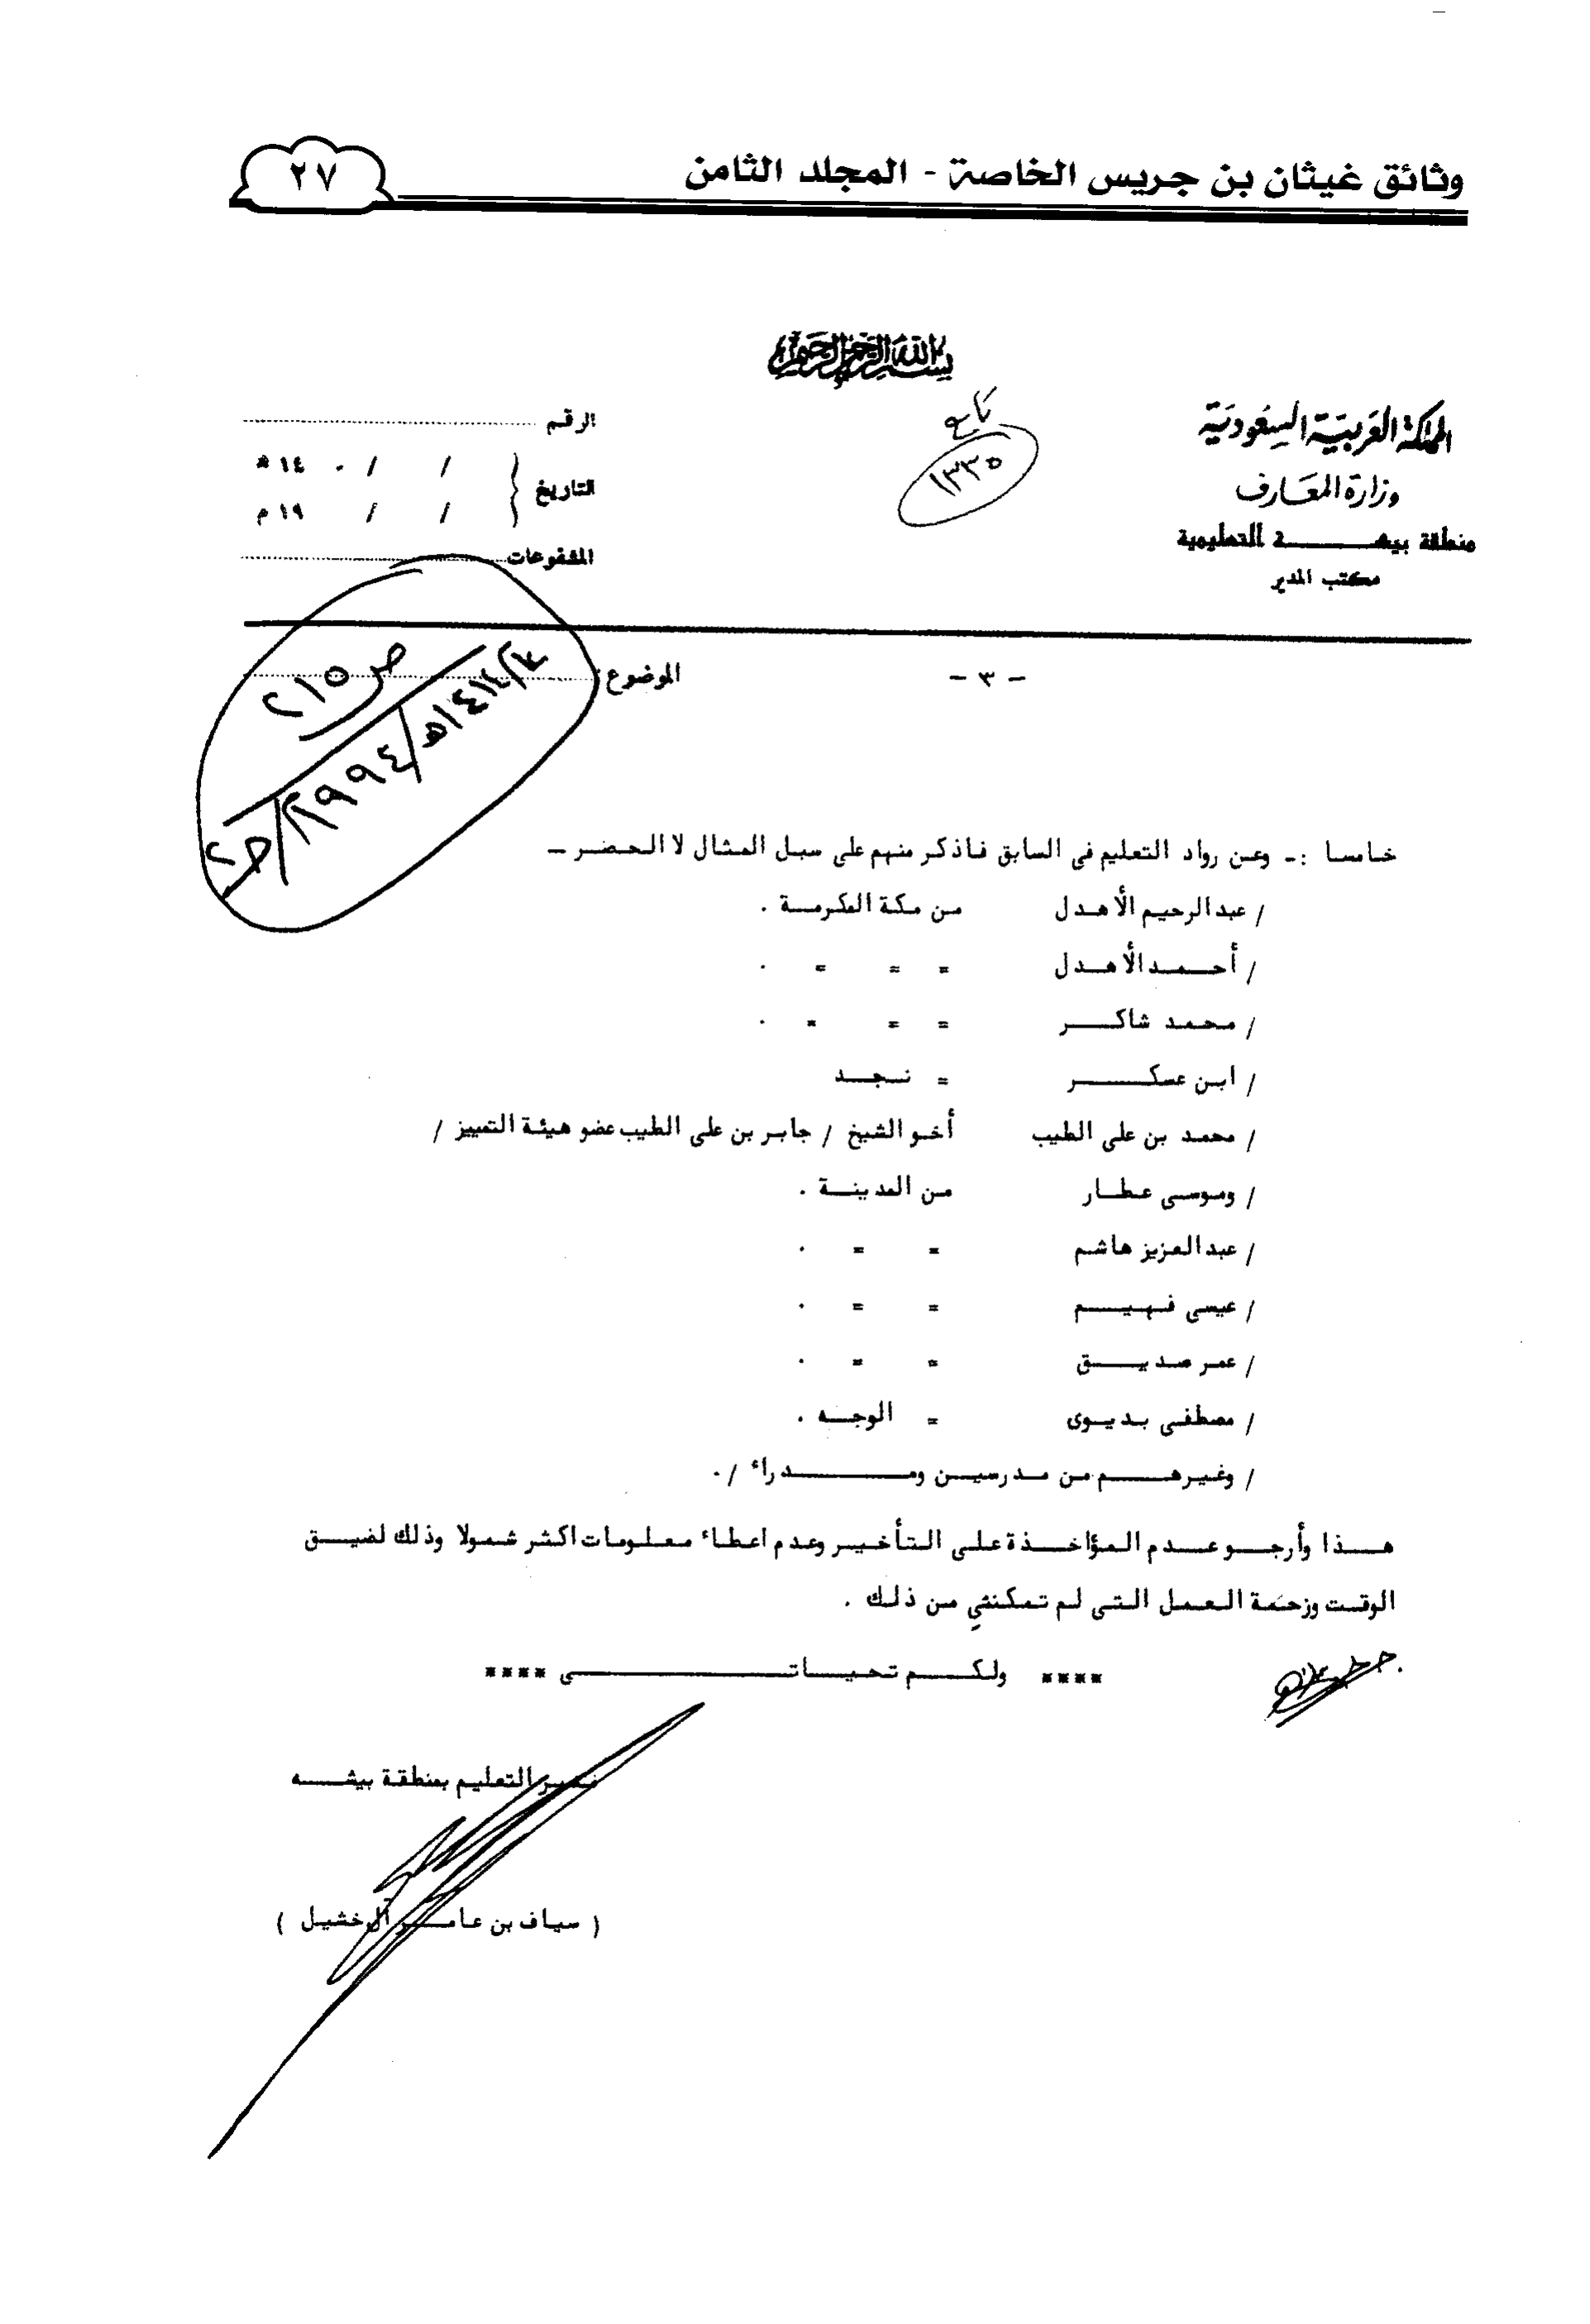 وثائق غيثان بن جريس الخاصة - المجلد الثامن
٢٧
بسم الله الرحمن الرحيم
المملكة العربية السعودية
وزارة المعارف
منطقة بيشـــــة التعليمية
مكتب المدير
تابع
١٣٣٥
الرقم
التاريخ
/ / ١٤٠ هـ
/ / ١٩ م
المشفوعات
الموضوع:
- ٣ -
ص٢١٥
خامسا :- وعن رواد التعليم فى السابق فاذكر منهم على سبل المثال لا الحضر –
/ عبدالرحيم الأهدل من مكة المكرمة .
/ أحمد الأهدل = = = .
/ محمد شاكر = = = .
/ ابن عسكر = نجد
/ محمد بن على الطيب أخو الشيخ / جابر بن على الطيب عضو هيئة التمييز /
/ وموسى عطار من المدينة .
/ عبدالعزيز هاشم = = .
/ عيسى فهيم = = .
/ عمر صديق = = .
/ مصطفى بديوى = الوجه .
/ وغيرهم من مدرسين ومدراء /.
هذا وأرجو عدم المؤاخذة على التأخير وعدم اعطاء معلومات اكثر شمولا وذلك لضيق
الوقت وزحمة العمل التى لم تمكننى من ذلك .
**** ولكم تحياتى ****
مدير التعليم بمنطقة بيشه
( سياف بن عامر آل خشيل )